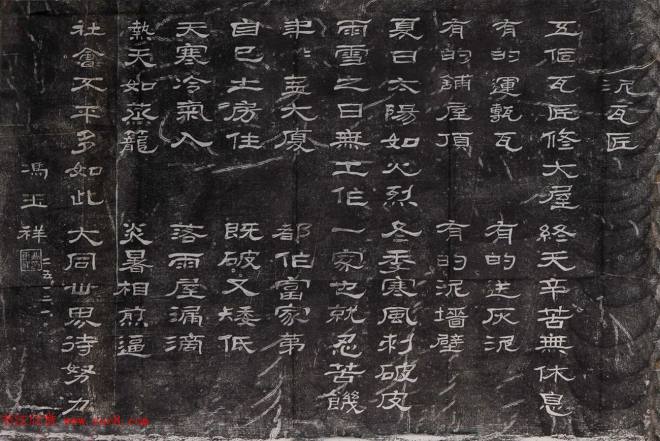 泥瓦匠
五個瓦匠修大屋 終天辛苦無休息
有的運甎瓦 有的送灰泥
有的鋪屋頂 有的泥墻壁
夏日太陽如火烈 冬季寒風刺破皮
雨雪之日無工作 一家也就忍苦饑
蓋大廈 都作富家弟
自己土房住 既破又矮低
天寒冷氣入 落雨屋漏滴
熱天如蒸籠 炎暑相煎逼
社會不平多如此 大同世界待努力
馮玉祥 二五.二.一.
书法欣赏 www.yac8.com